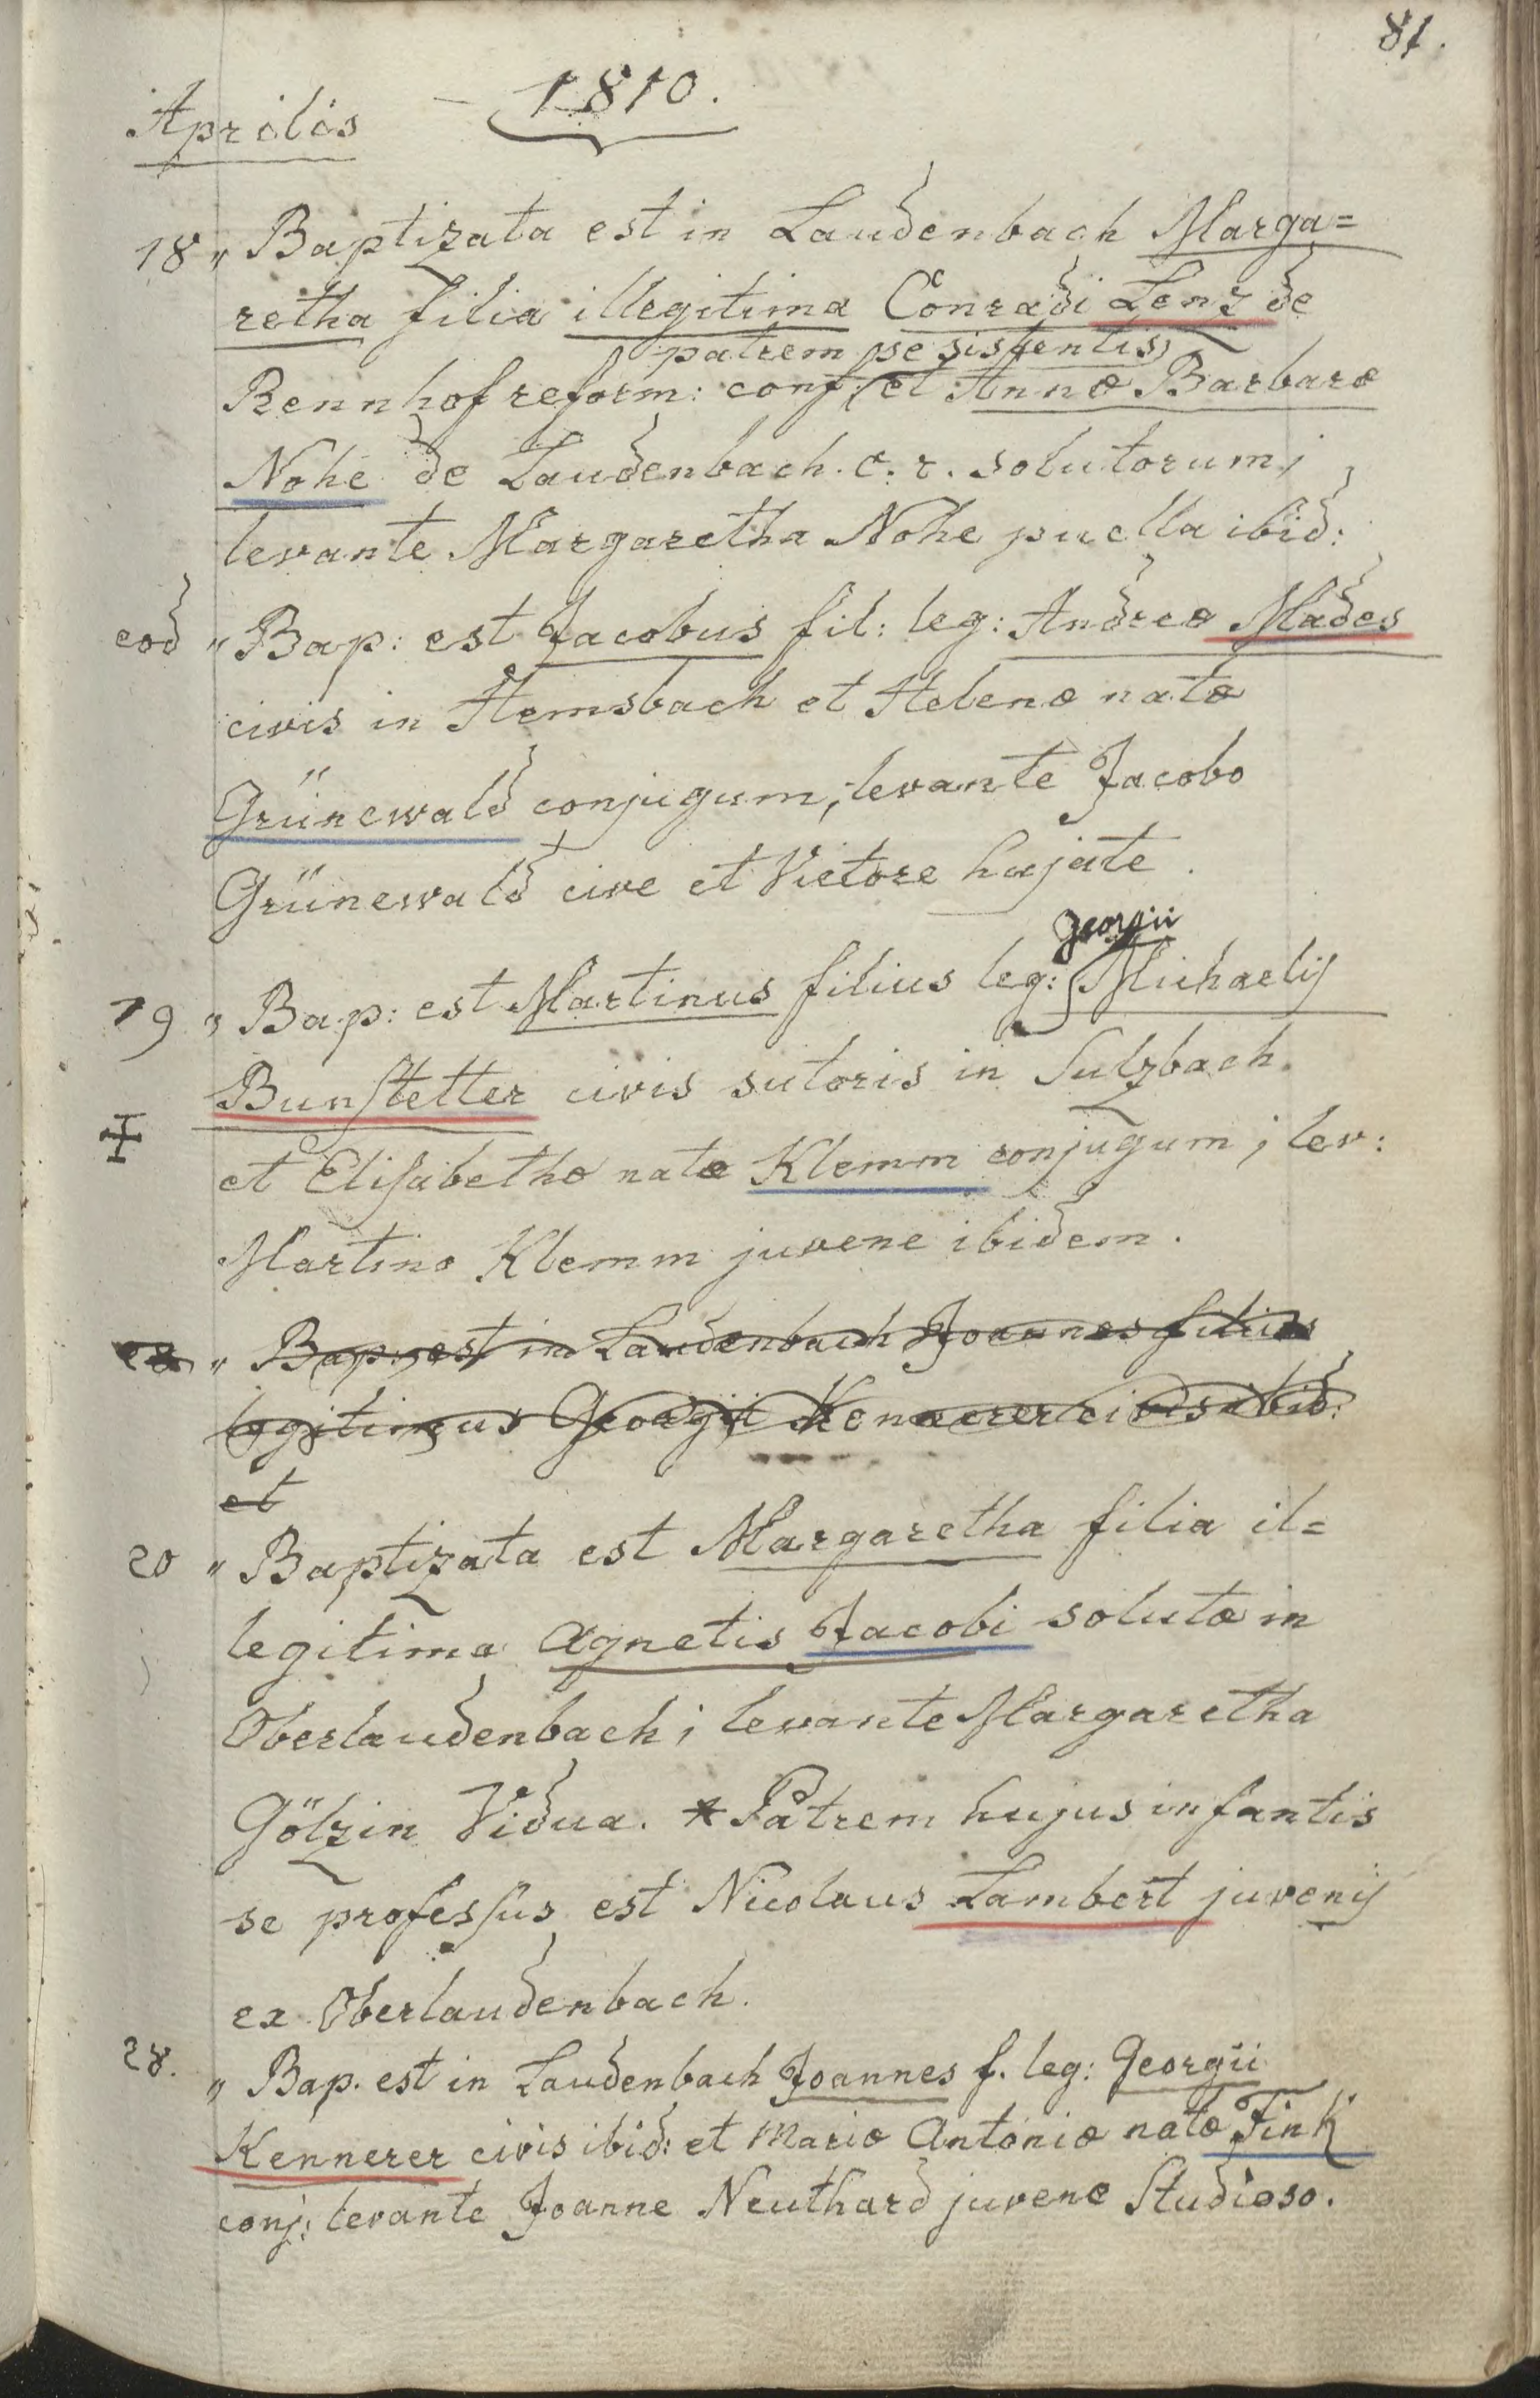 81.
Aprilis 1810.
18 „ Baptizata est in Laudenbach Marga=
retha filia illegitima Conradi Lenz de
patrem se sistentis
Rennhof reform: conf: et Annæ Barbaræ
Nohe de Laudenbach. c. r. solutorum;
levante Margaretha Nohe puella ibid:
eod „ Bap: est Jacobus fil: leg: Andreæ Mades
civis in Hemsbach et Helenæ natæ
Grünewald conjugum; levante Jacobo
Grünewald cive et Vietore hujate.
Georgii
19 „ Bap: est Martinus filius leg: Michaelis
Bunstetter civis sutoris in Sulzbach
et Elisabethæ natæ Klemm conjugum; lev:
Martino Klemm juvene ibidem.
„ Bap: est in Laudenbach Joannes filius
legitimus Georgii Kennerer civis ibid:
et
20 „ Baptizata est Margaretha filia il=
legitima Agnetis Jacobi solutæ in
Oberlaudenbach; levante Margaretha
Gölzin Vidua. * Patrem hujus infantis
se professus est Nicolaus Lambert juvenis
ex Oberlaudenbach.
28. „ Bap. est in Laudenbach Joannes f. leg: Georgii
Kennerer civis ibid: et Mariæ Antoniæ natæ Fink
conj: levante Joanne Neuthard juvene Studioso.